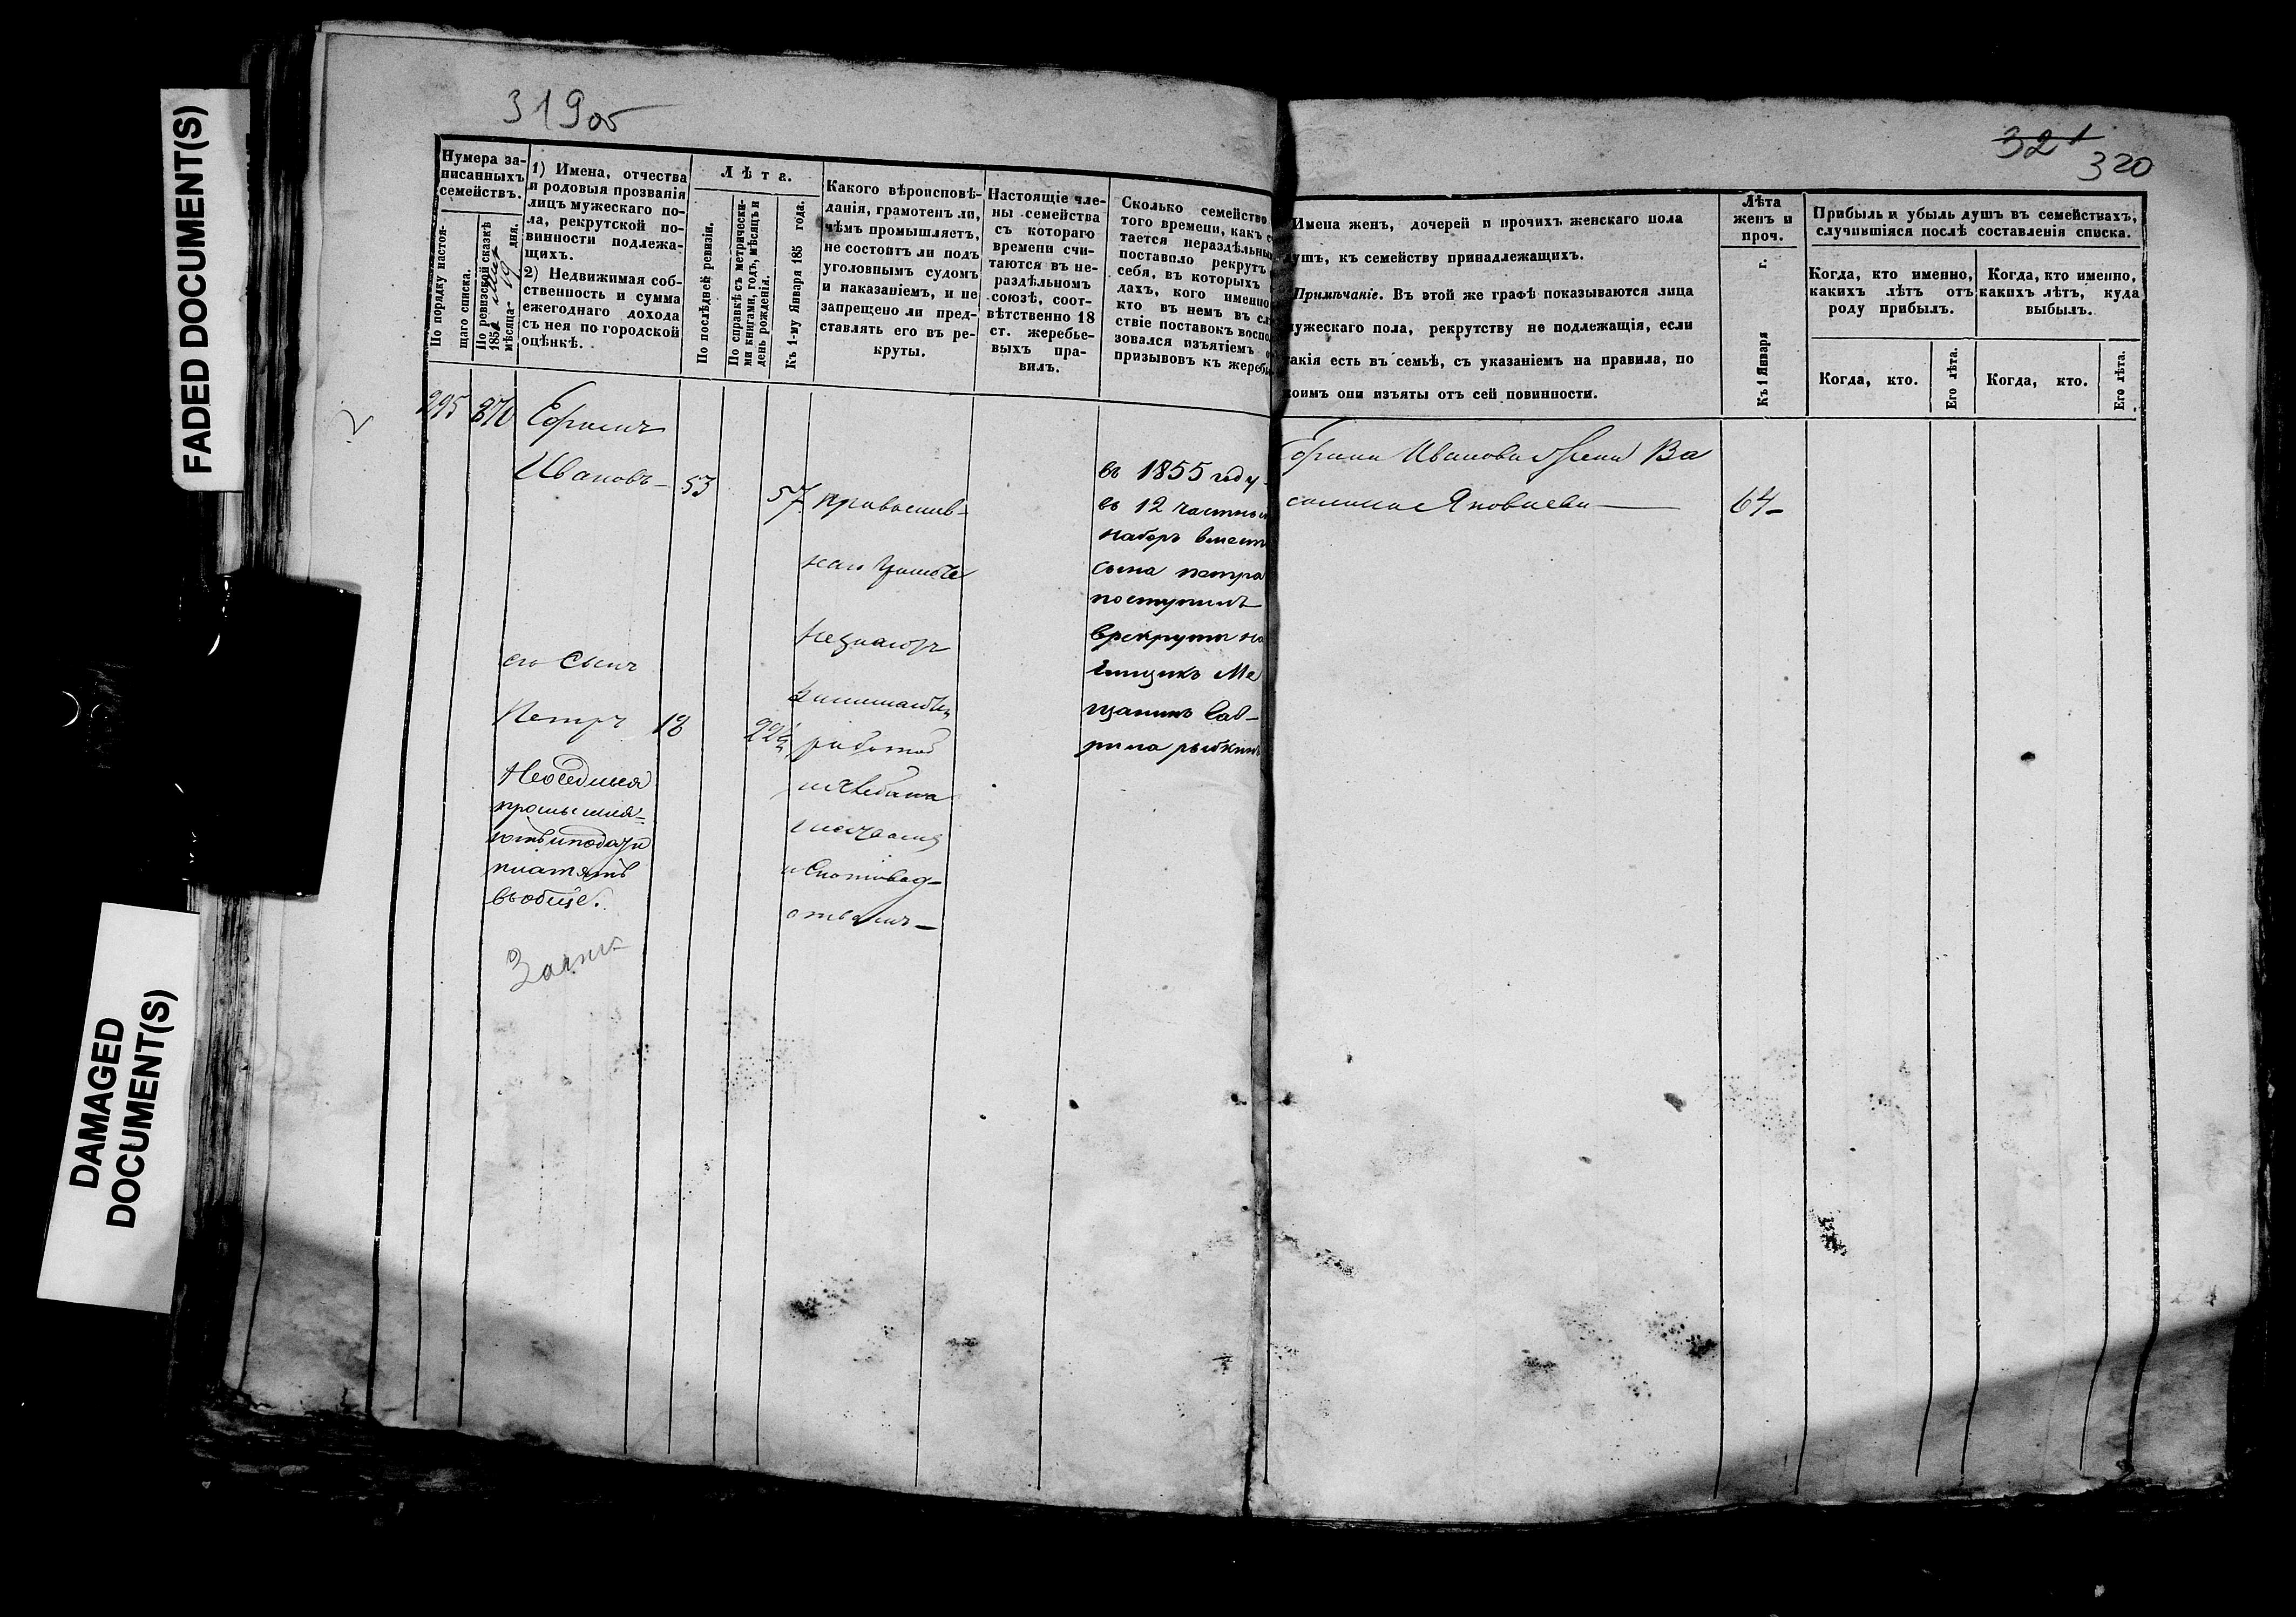 FADED DOCUMENT(S)
DAMAGED
DOCUMENT(S)
319об
Нумера за-
писанныхъ
семействъ.
По порядку настоя-
щаго списка.
По ревизской сказкѣ
185
мѣсяца 19 дня.
1) Имена, отчества
и родовыя прозванія
лицъ мужескаго по-
ла, рекрутской по-
винности подлежа-
щихъ.
2) Недвижимая соб-
ственность и сумма
ежегоднаго дохода
съ нея по городской
оцѣнкѣ.
Лѣта.
По послѣдней ревизіи.
По справкѣ съ метрически-
ми книгами, годъ, мѣсяцъ и
день рожденія.
Къ 1-му Января 185 года.
Какого вѣроисповѣ-
данія, грамотенъ ли,
чѣмъ промышляетъ,
не состоитъ ли подъ
уголовнымъ судомъ
и наказаніемъ, и не
запрещено ли пред-
ставлять его въ ре-
круты.
Настоящіе чле-
ны семейства
съ котораго
времени счи-
таются въ не-
раздѣльномъ
союзѣ, соот-
вѣтственно 18
ст. жеребье-
выхъ пра-
вилъ.
Сколько семейство
того времени, какъ с
тается нераздѣльны
поставило рекрутъ
себя, въ которыхъ
дахъ, кого именно
кто въ немъ въ сл
ствіе поставокъ воспо
зовался изъятіемъ о
призывовъ къ жеребь
295
870
Ефимъ
Ивановъ
53
57
православ-
наго
его Сынъ
Петръ
18
22
работой
Неоседлыя
промышля-
ютъ и подати
платятъ
вобще.
въ 1855 году
въ 12 частный
наборъ вмест
сына петра
поступилъ
врекруты на
емщикъ Ме
щанинъ Гав-
рила рыбкинъ
321
320
Имена женъ, дочерей и прочихъ женскаго пола
душъ, къ семейству принадлежащихъ.
Примѣчаніе. Въ этой же графѣ показываются лица
мужескаго пола, рекрутству не подлежащія, если
такія есть въ семьѣ, съ указаніемъ на правила, по
коимъ они изъяты отъ сей повинности.
Лѣта
женъ и
проч.
Къ 1 Января г.
Прибыль и убыль душъ въ семействахъ,
случившіяся послѣ составленія списка.
Когда, кто именно,
какихъ лѣтъ отъ
роду прибылъ.
Когда, кто именно,
какихъ лѣтъ, куда
выбылъ.
Когда, кто.
Его лѣта.
Когда, кто.
Его лѣта.
Ефима Иванова жена Ва
силиса Яковлева
64